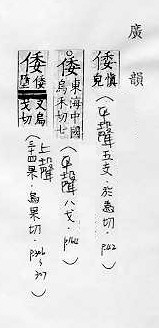 廣韻
倭 慎皃 (平聲五支·於爲切·p42)
倭 東海中國烏禾切七 (平聲八戈·p162)
倭 倭墮又烏戈切 (上聲三十四果·烏果切·p306~307)